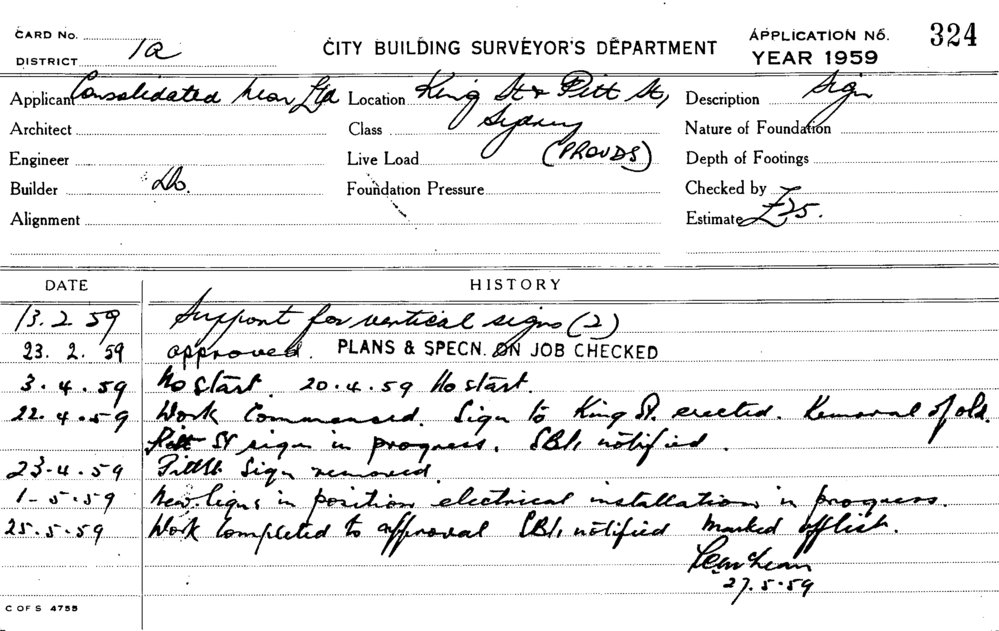 CARD No.
DISTRICT 1a
CITY BUILDING SURVEYOR'S DEPARTMENT
APPLICATION No. 324
YEAR 1959
Applicant Consolidated Neon Ltd Location King St & Pitt St, Description Sign
Architect Class Sydney Nature of Foundation
Engineer Live Load (PROUDS) Depth of Footings
Builder Do. Foundation Pressure Checked by
Alignment Estimate £25.
DATE HISTORY
13.2.59 Support for vertical signs (2)
23.2.59 approved. PLANS & SPECN. ON JOB CHECKED
3.4.59 No start. 20.4.59 No start.
22.4.59 Work Commenced. Sign to King St. erected. Removal of old
Pitt St sign in progress. SBI, notified.
23.4.59 Pitt St Sign removed
1-5-59 New Signs in position, electrical installation in progress.
25.5.59 Work Completed to approval SBI, notified Marked off list.
27.5.59
C OF S 4755